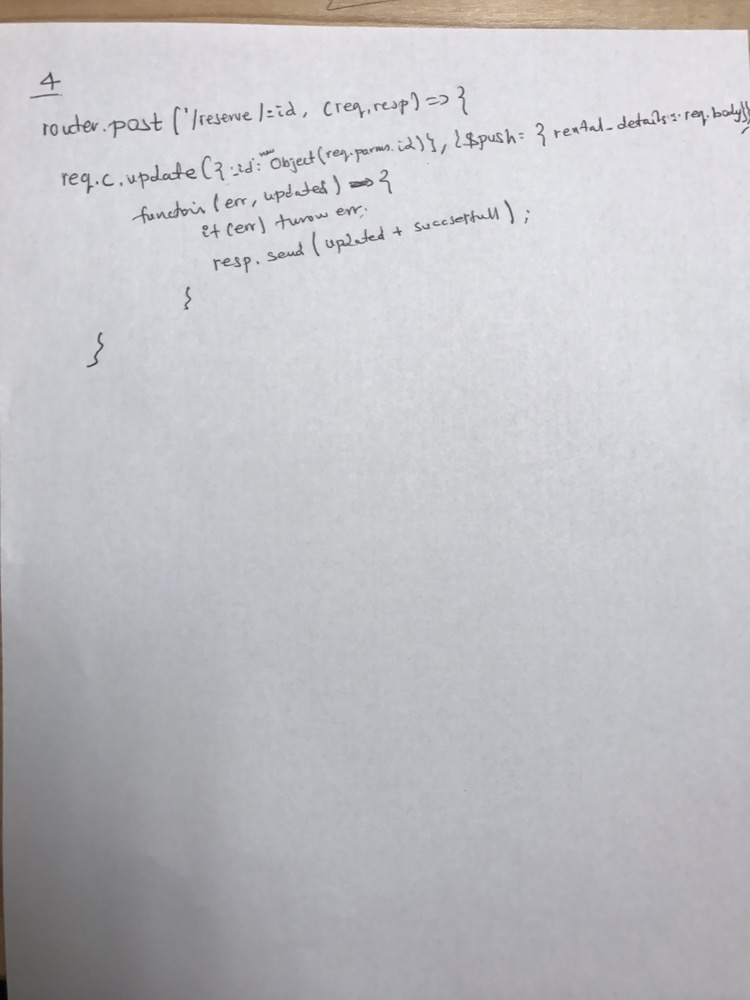 4
router.post ('/reserve/:id, (req,resp) => {
req.c.update ({ _id: new Object(req.parms.id)}, {$push: { rental_details: req.body}}
functoin (err, updated) => {
if (err) turow err.
resp. send (updated + succsetfull) ;
}
}